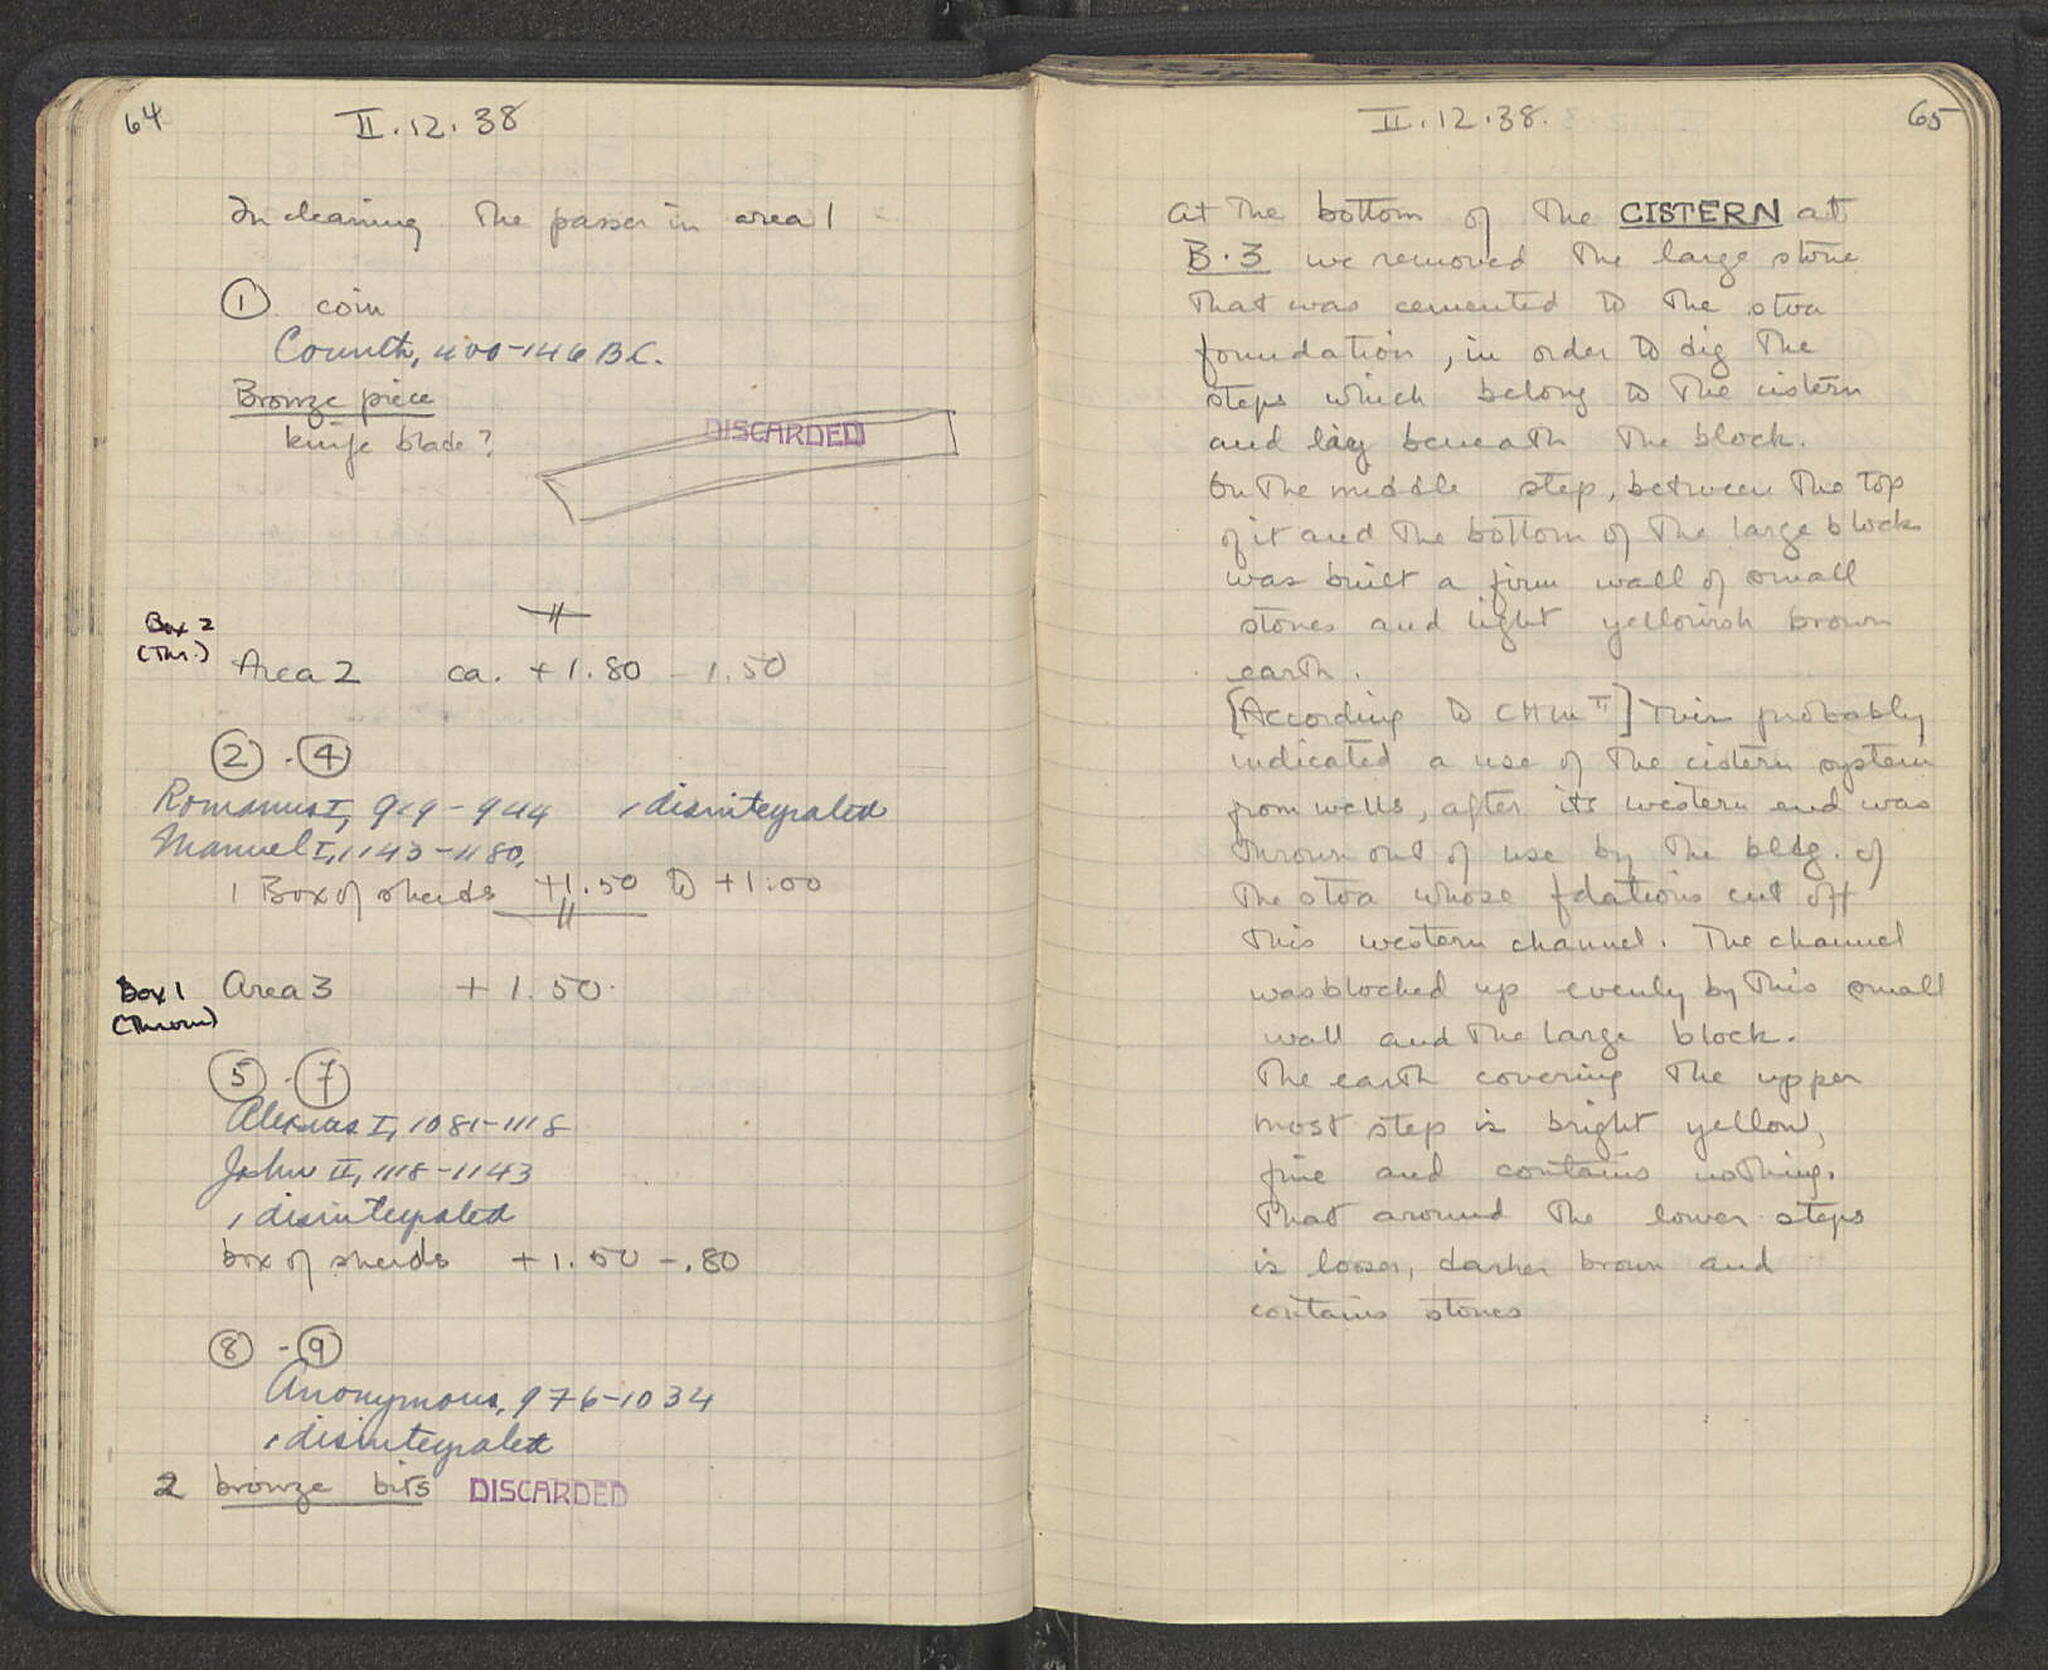 64
II.12.38
In cleaning the passer in area 1
① coin
Corinth, 400-146 B.C.
Bronze piece
knife blade?
DISCARDED
Box 2
(Thr.)
Area 2 ca. +1.80 - 1.50
② - ④
Romanus I, 919-944 1 disintegrated
Manuel I, 1143-1180,
1 Box of sherds +1.50 to +1.00
Box 1
(Thrown)
Area 3 +1.50
⑤ - ⑦
Alexius I, 1081-1118
John II, 1118-1143
1 disintegrated
box of sherds +1.50 - .80
⑧ - ⑨
Anonymous, 976-1034
1 disintegrated
2 bronze bits DISCARDED
II.12.38.
65
At the bottom of the CISTERN at
B.3 we removed the large stone
that was cemented to the stoa
foundation, in order to dig the
steps which belong to the cistern
and lay beneath the block.
On the middle step, between the top
of it and the bottom of the large block
was built a firm wall of small
stones and light yellowish brown
earth.
[According to CHM II] This probably
indicated a use of the cistern system
from wells, after its western end was
thrown out of use by the bldg. of
the stoa whose fdations cut off
this western channel. The channel
was blocked up evenly by this small
wall and the large block.
The earth covering the upper
most step is bright yellow,
fine and contains nothing.
That around the lower steps
is looser, darker brown and
contains stones